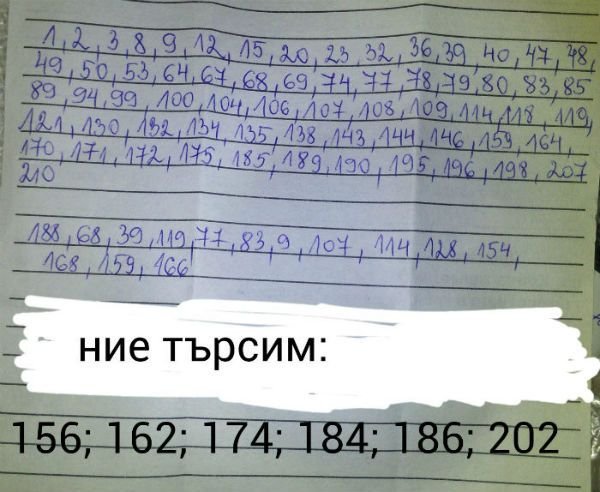 1, 2, 3, 8, 9, 12, 15, 20, 23, 32, 36, 39, 40, 47, 48,
49, 50, 53, 64, 67, 68, 69, 74, 77, 78, 79, 80, 83, 85
89, 94, 99, 100, 104, 106, 107, 108, 109, 114, 118, 119,
121, 130, 132, 134, 135, 138, 143, 144, 146, 159, 164,
170, 171, 172, 175, 185, 189, 190, 195, 196, 198, 207
210
188, 68, 39, 119, 77, 83, 9, 107, 114, 128, 154,
168, 159, 166
ние търсим:
156; 162; 174; 184; 186; 202